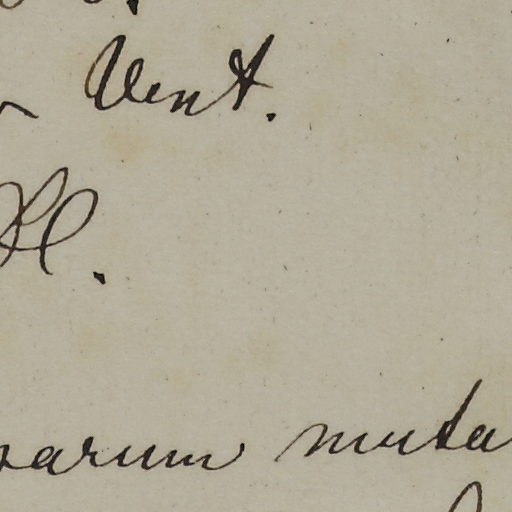 Vent.
Rl.
parum muta